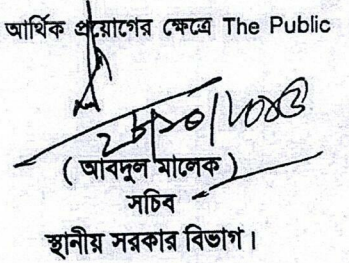 আর্থিক প্রয়োগের ক্ষেত্রে The Public
( আবদুল মালেক )
সচিব
স্থানীয় সরকার বিভাগ।